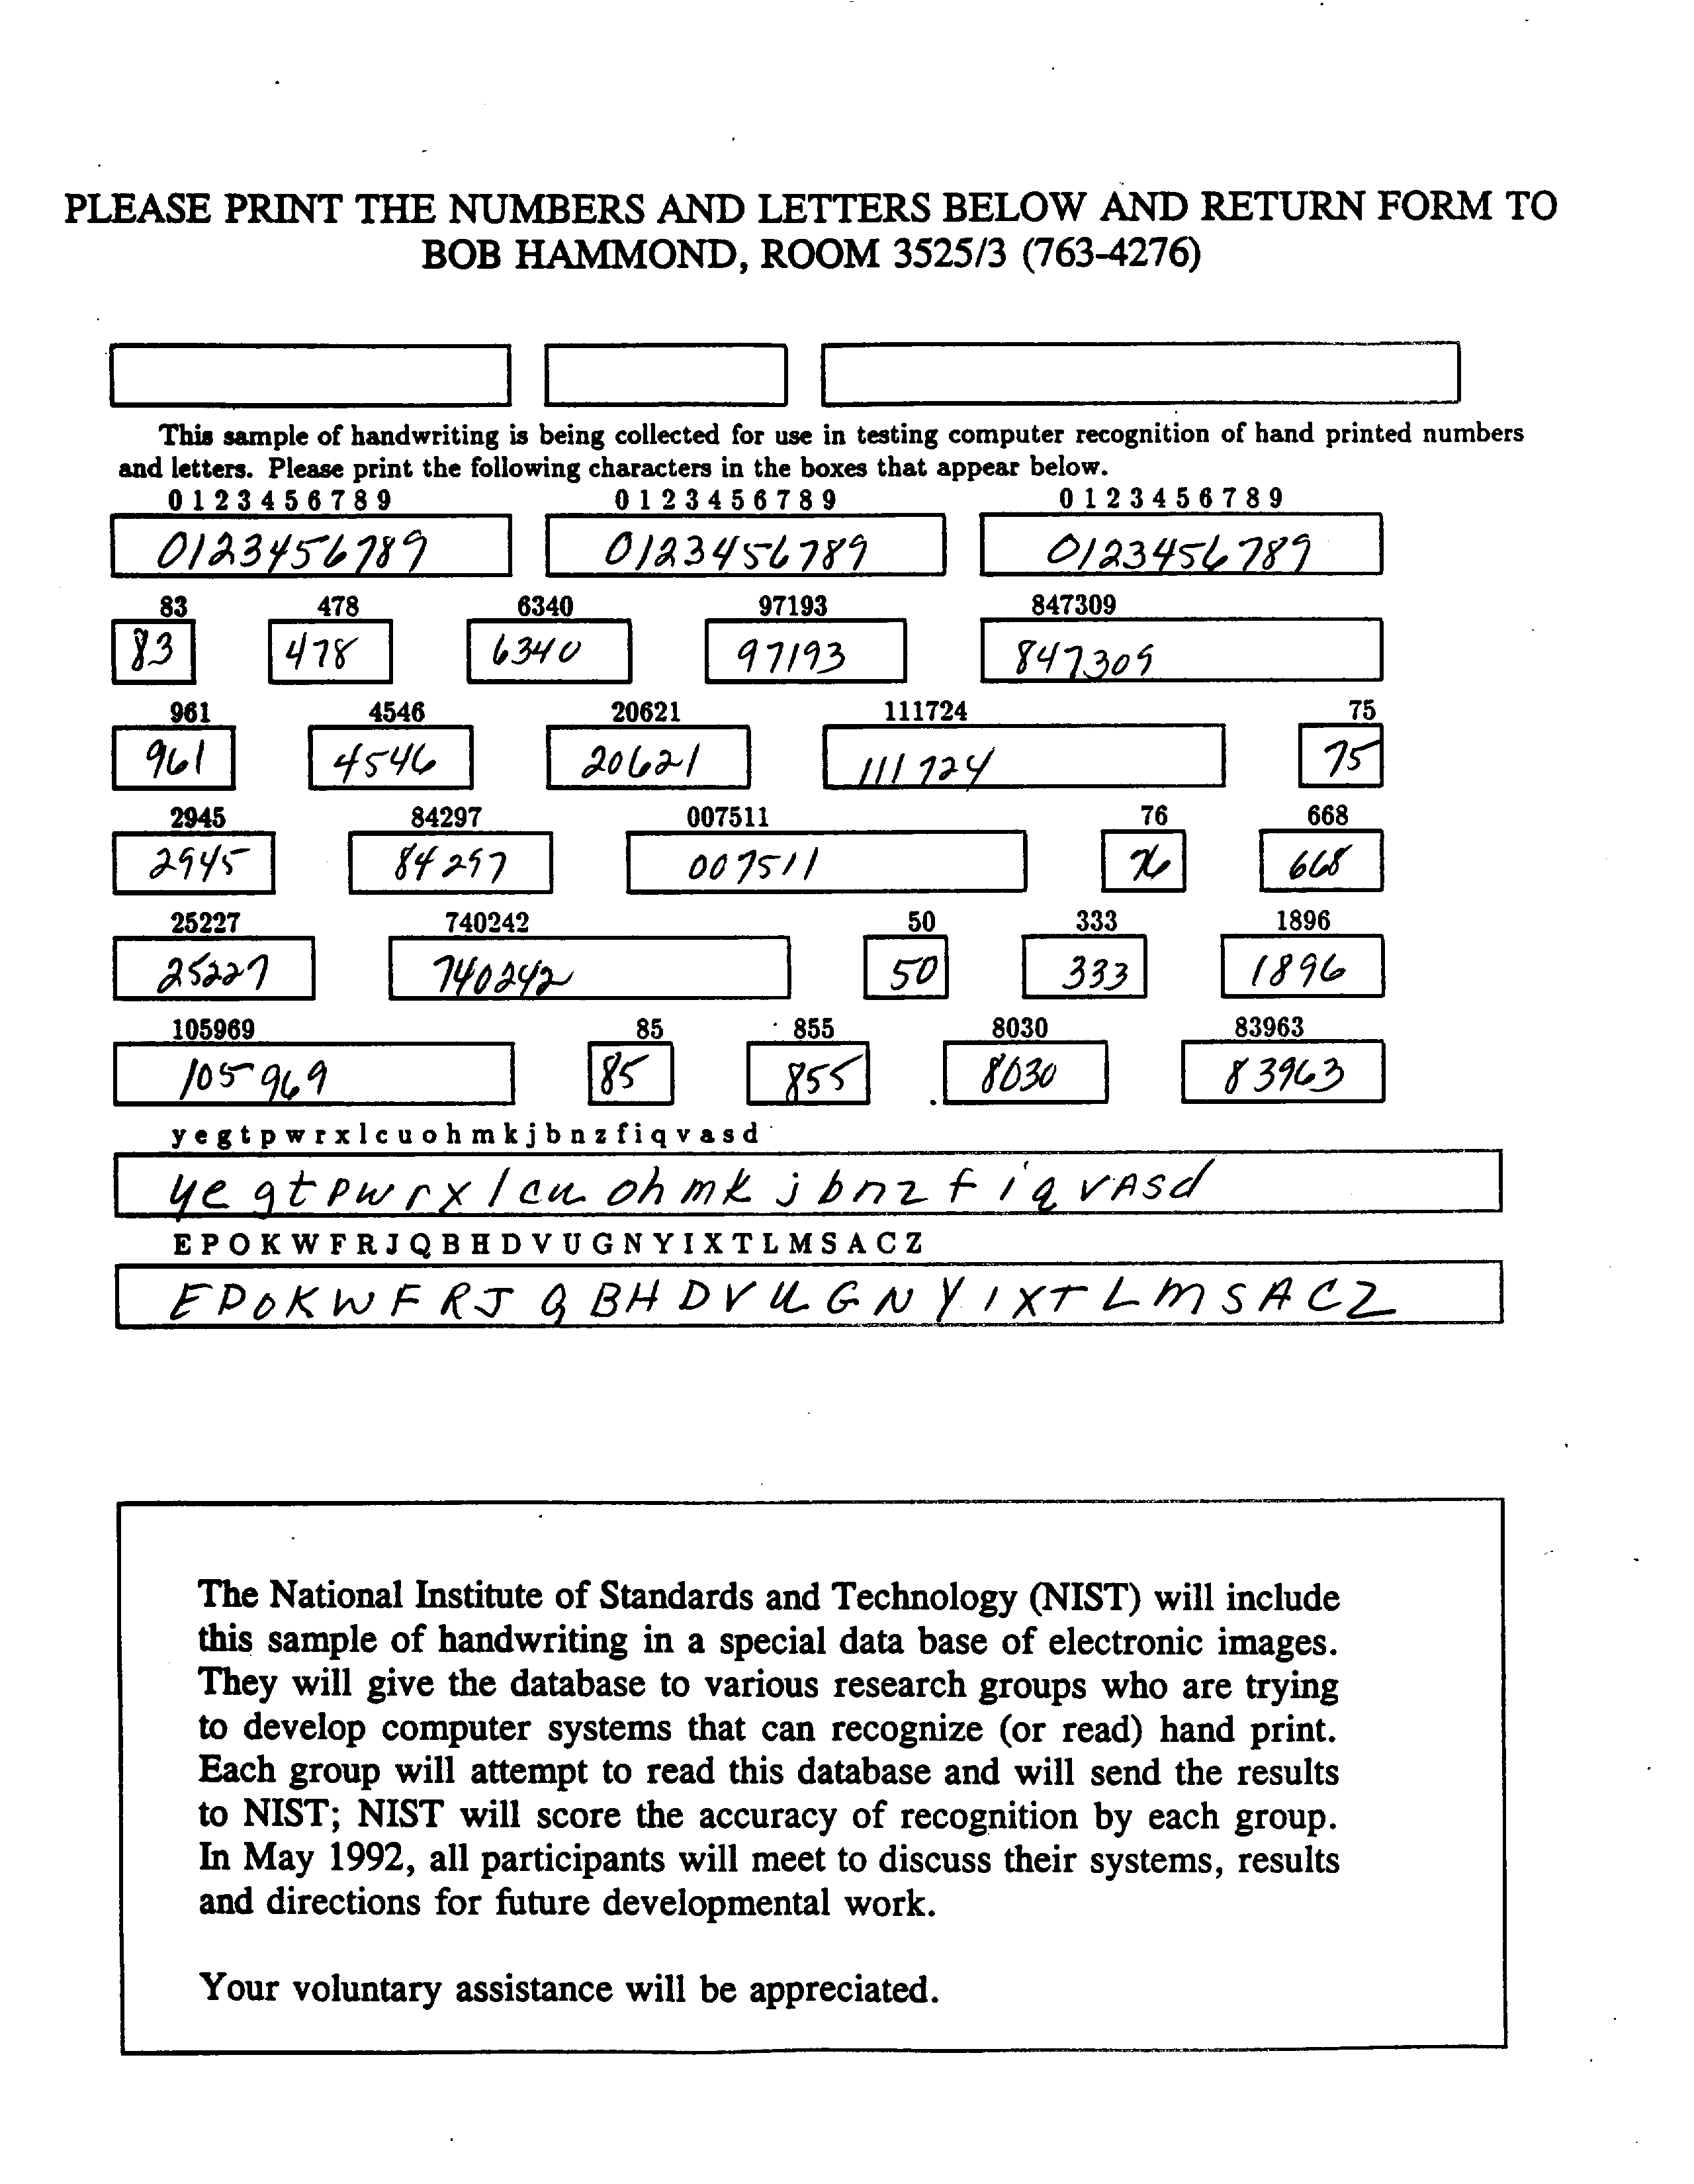 PLEASE PRINT THE NUMBERS AND LETTERS BELOW AND RETURN FORM TO
BOB HAMMOND, ROOM 3525/3 (763-4276)
This sample of handwriting is being collected for use in testing computer recognition of hand printed numbers
and letters. Please print the following characters in the boxes that appear below.
0 1 2 3 4 5 6 7 8 9 0 1 2 3 4 5 6 7 8 9 0 1 2 3 4 5 6 7 8 9
0123456789 0123456789 0123456789
83 478 6340 97193 847309
83 478 6340 97193 847309
961 4546 20621 111724 75
961 4546 20621 111724 75
2945 84297 007511 76 668
2945 84297 007511 76 668
25227 740242 50 333 1896
25227 740242 50 333 1896
105969 85 855 8030 83963
105969 85 855 8030 83963
y e g t p w r x l c u o h m k j b n z f i q v a s d
y e g t p w r x l c u o h m k j b n z f i q v A s d
E P O K W F R J Q B H D V U G N Y I X T L M S A C Z
E P O K W F R J Q B H D V U G N Y I X T L M S A C Z
The National Institute of Standards and Technology (NIST) will include
this sample of handwriting in a special data base of electronic images.
They will give the database to various research groups who are trying
to develop computer systems that can recognize (or read) hand print.
Each group will attempt to read this database and will send the results
to NIST; NIST will score the accuracy of recognition by each group.
In May 1992, all participants will meet to discuss their systems, results
and directions for future developmental work.
Your voluntary assistance will be appreciated.